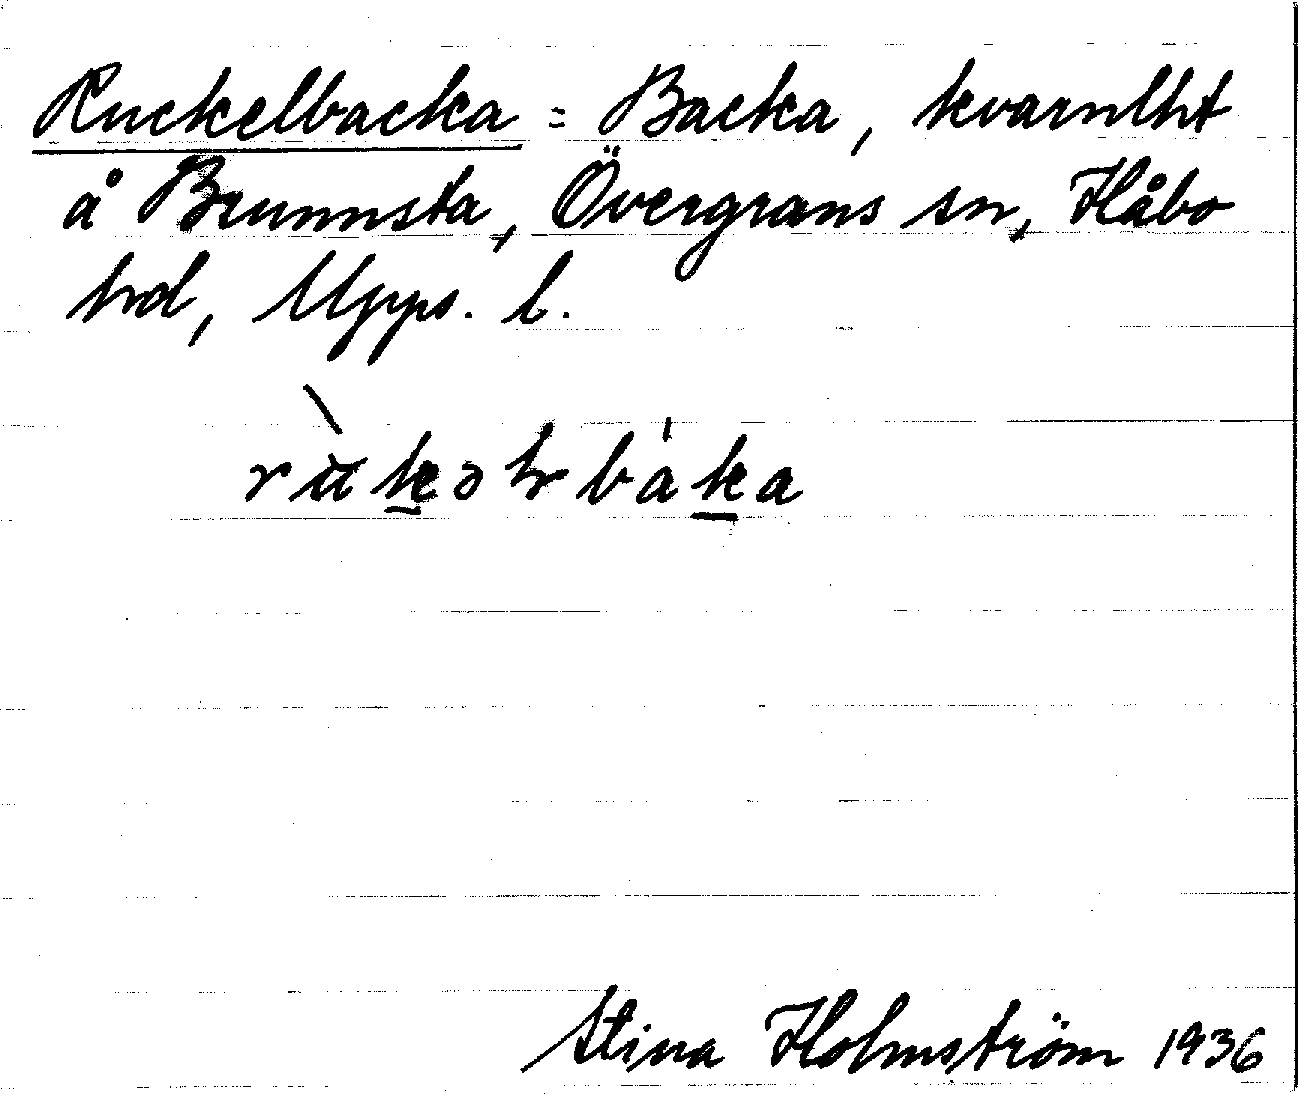 Ruckelbacka = Backa, kvarnlht
å Brunnsta, Övergrans sn, Håbo
hrd, Upps. l.
Stina Holmström 1936